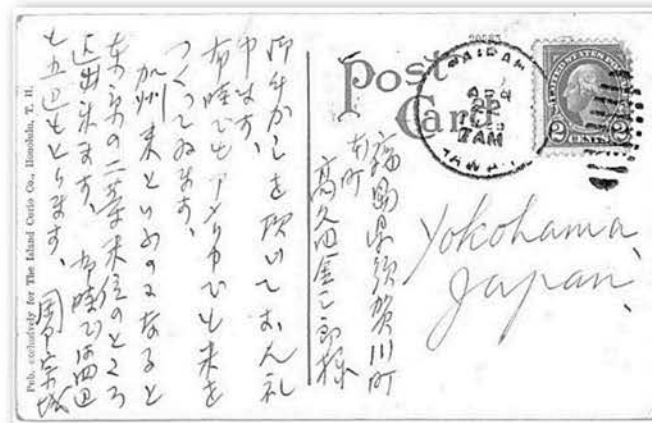 Post
Card
APR
22
7AM
HAWAII
UNITED STATES POSTAGE
2 CENTS 2
Yokohama,
Japan.
福島県須賀川町
高久田金三郎様
御手がみを頂いておん礼
申ます、
布哇でもアメリカでも米を
つくってゐます、
加州米といふのになると
東京の二等米位のところ
迄出来ます、布哇では四回
も五回もとります、
Pub. exclusively for The Island Curio Co., Honolulu, T. H.